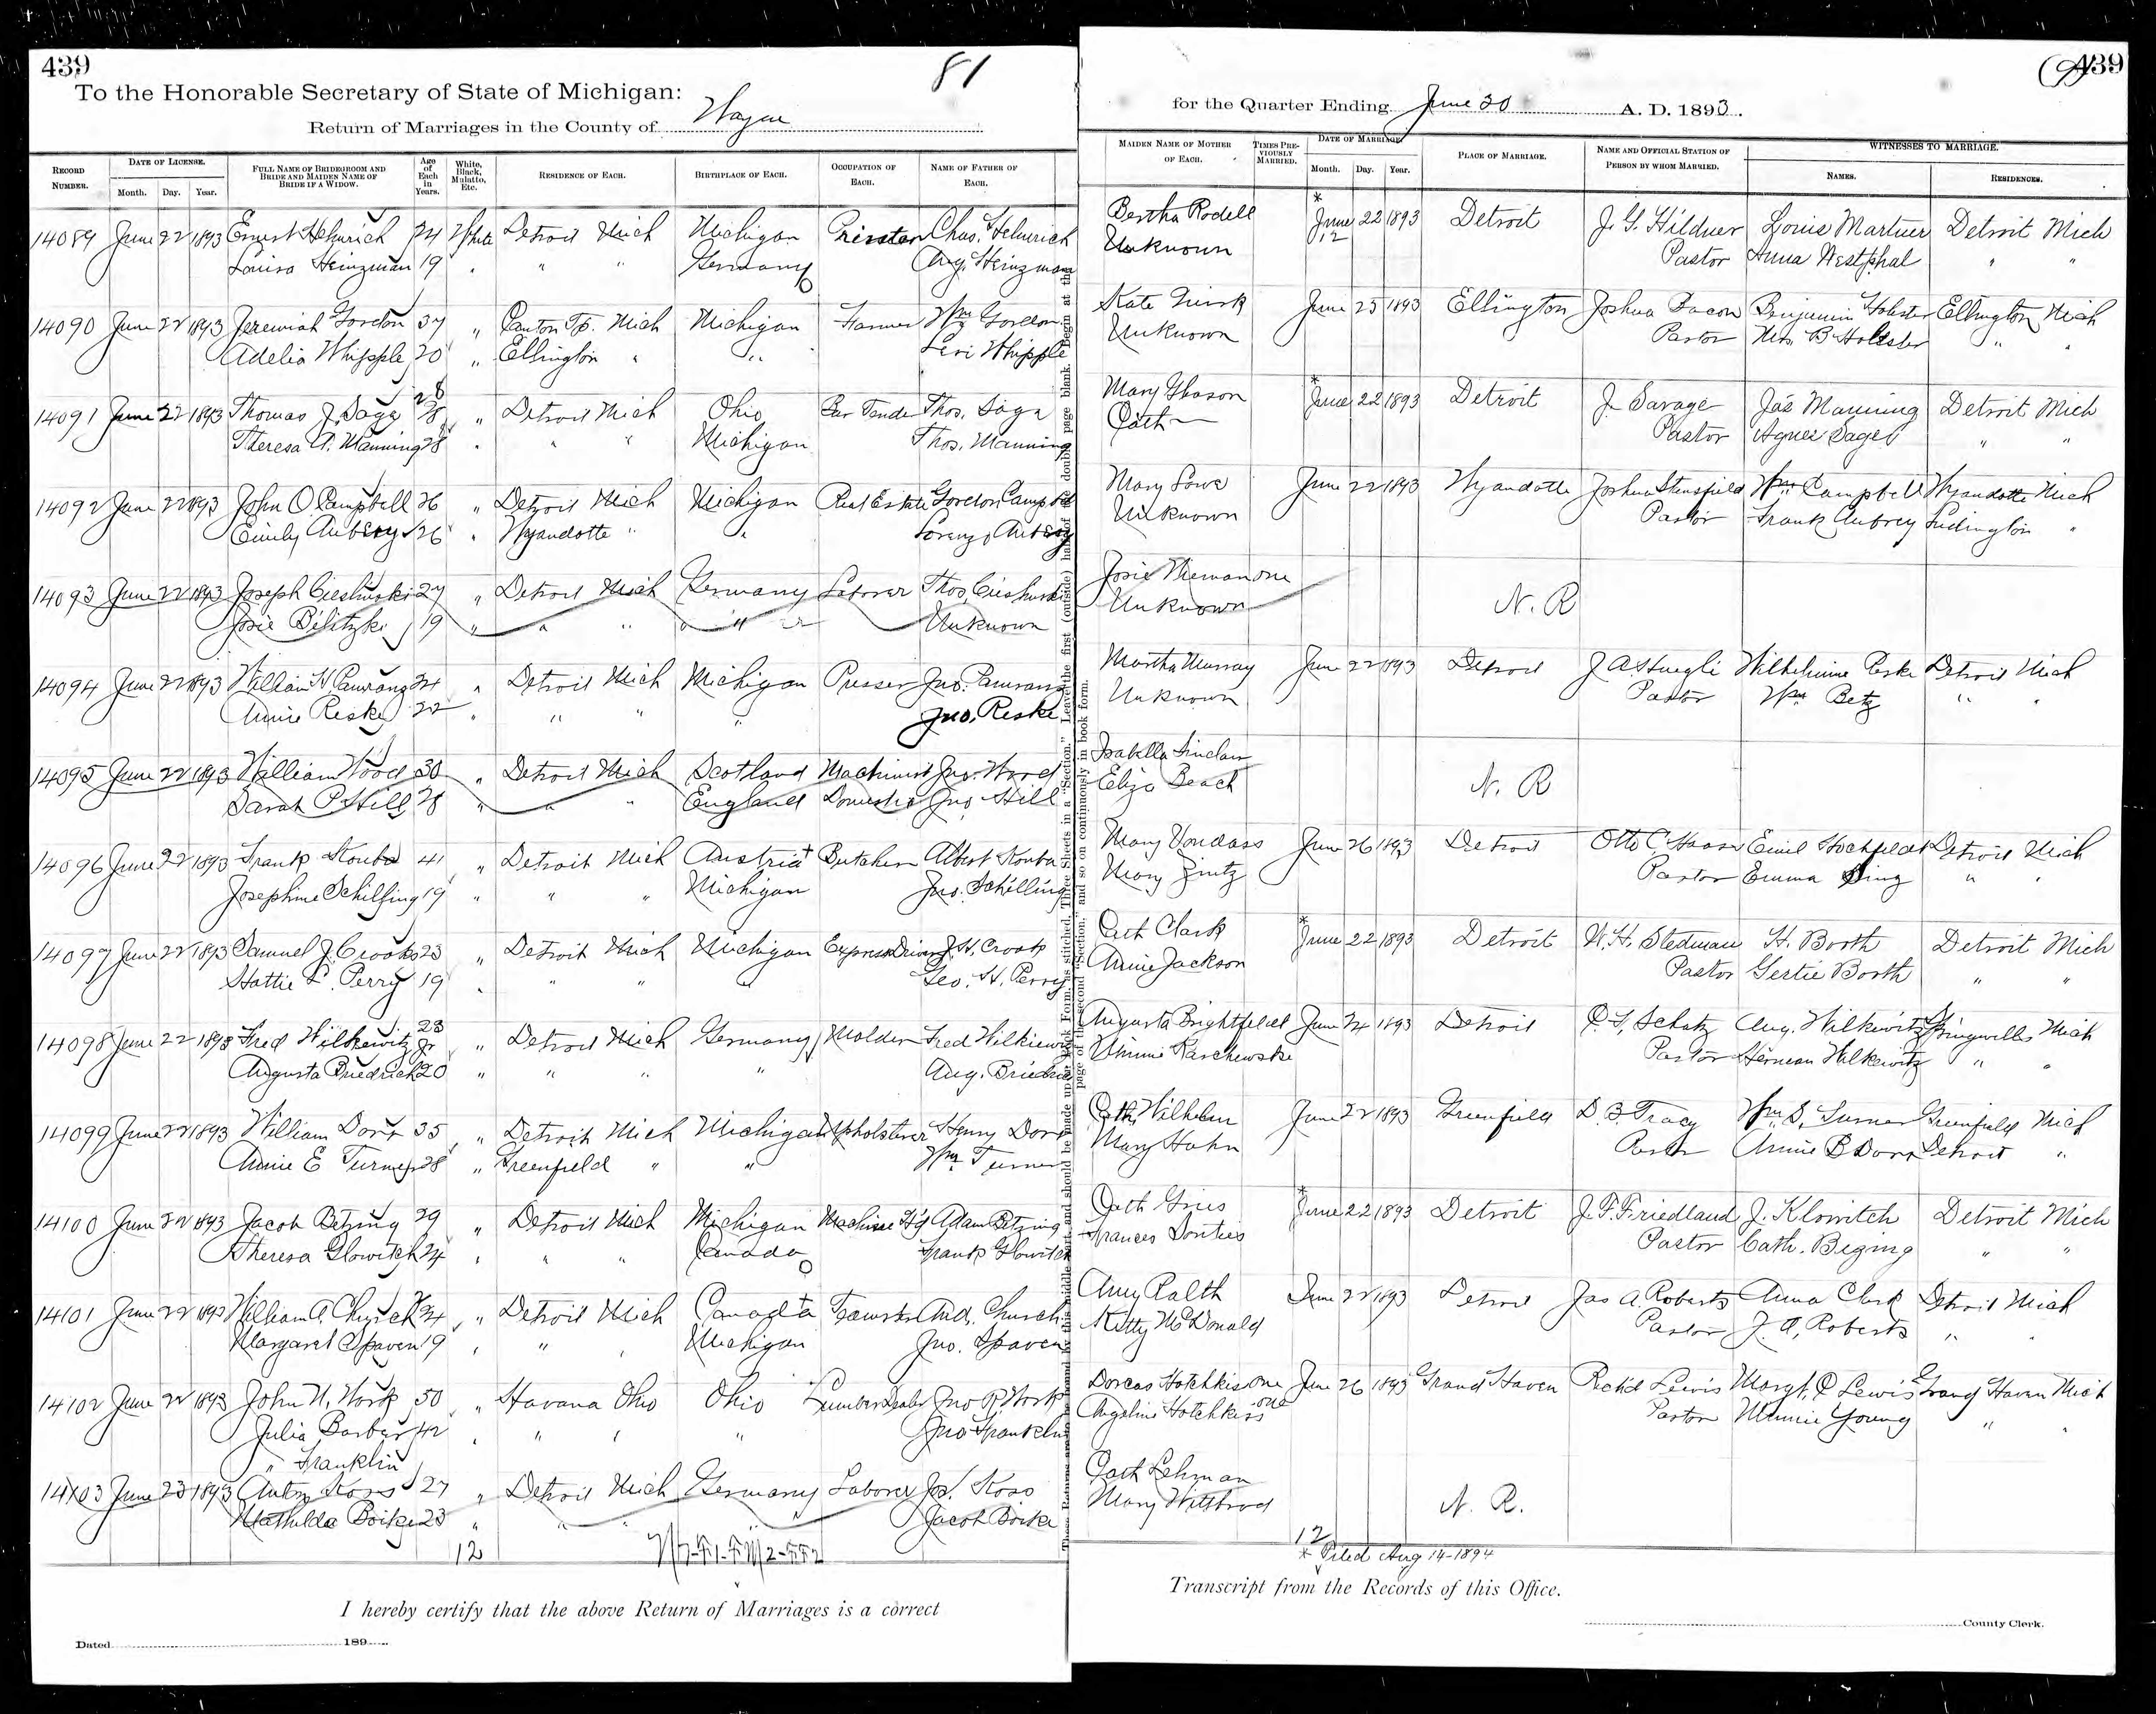 439
81
To the Honorable Secretary of State of Michigan:
Return of Marriages in the County of Wayne
439
for the Quarter Ending June 30 A. D. 1893.
RECORD NUMBER. DATE OF LICENSE. Month. Day. Year. FULL NAME OF BRIDEGROOM AND BRIDE AND MAIDEN NAME OF BRIDE IF A WIDOW. Age of Each in Years. White, Black, Mulatto, Etc. RESIDENCE OF EACH. BIRTHPLACE OF EACH. OCCUPATION OF EACH. NAME OF FATHER OF EACH.
MAIDEN NAME OF MOTHER OF EACH. TIMES PREVIOUSLY MARRIED. DATE OF MARRIAGE. Month. Day. Year. PLACE OF MARRIAGE. NAME AND OFFICIAL STATION OF PERSON BY WHOM MARRIED. WITNESSES TO MARRIAGE. NAMES. RESIDENCES.
14089 June 22 1893 Ernest Helmrich 24 White Detroit Mich Michigan Chas. Helmrich Bertha Rodell * June 22 1893 Detroit J. G. Hildner Louis Martner Detroit Mich
Louisa Heinzman 19 " " " Germany Aug. Heinzman Unknown 12 Pastor Anna Westphal " "
14090 June 22 1893 Jeremiah Gordon 37 " Canton Tp. Mich Michigan Farmer Wm Gordon Kate June 25 1893 Ellington Joshua Bacon Benjamin Ellington Mich
Adelia Whipple 20 " Ellington " " Levi Whipple Unknown Pastor Mrs. B " "
14091 June 22 1893 Thomas J. Sage 28 " Detroit Mich Ohio Bar Tender Thos. Sage Mary Gleason * June 22 1893 Detroit J. Savage Jas Manning Detroit Mich
Theresa A. Manning 28 " " " Michigan Thos. Manning Cath — Pastor Agnes Sage " "
14092 June 22 1893 John O Campbell 26 " Detroit Mich Michigan Real Estate Gordon Campbell Mary Lowe June 22 1893 Wyandotte Joshua Stansfield Wm Campbell Wyandotte Mich
Emily Aubrey 26 " Wyandotte " " Lorenzo Aubrey Unknown Pastor Frank Aubrey Ludington "
14093 June 22 1893 Joseph Cieslinski 27 " Detroit Mich Germany Laborer Thos. Josie one N. R
Josie Bilitzki 19 " " " " Unknown Unknown
14094 June 22 1893 William H 24 " Detroit Mich Michigan Presser Jno. Martha Murray June 22 1893 Detroit J A Huegli Wilhelmine Reske Detroit Mich
Annie Reske 22 " " " " Jno. Reske Unknown Pastor Wm Betz " "
14095 June 22 1893 William Wood 30 " Detroit Mich Scotland Machinist Jno. Wood Isabella Sinclair N. R
Sarah P Hill 28 " " " England Domestic Jno. Hill Eliza Beach
14096 June 22 1893 Frank Kouba 41 " Detroit Mich Austria Butcher Albert Kouba Mary Vondass June 26 1893 Detroit Otto C. Haass Emil Hochfeldt Detroit Mich
Josephine Schilling 19 " " " Michigan Jno. Schilling Mary Zintz Pastor Emma " "
14097 June 22 1893 Samuel J. Crooks 23 " Detroit Mich Michigan Express Driver J. H. Crook Cath Clark * June 22 1893 Detroit W. H. Stedman H. Booth Detroit Mich
Hattie L. Perry 19 " " " " Geo. H. Perry Annie Jackson Pastor Gertie Booth " "
14098 June 22 1893 Fred Wilkewitz Jr 23 " Detroit Mich Germany Molder Fred Wilkiewitz Augusta Brightfeld June 24 1893 Detroit Schatz Aug. Wilkewitz Springwells Mich
Augusta Friedrich 20 " " " " Minnie Raschewske Pastor Herman Wilkewitz " "
14099 June 22 1893 William Dorr 35 " Detroit Mich Michigan Upholsterer Henry Dorr Cath. Wilhelm June 22 1893 Greenfield D. B. Tracy Wm. S. Turner Greenfield Mich
Annie E Turner 28 " Greenfield " " Wm Turner Mary Hahn Pastor Annie B Dorr Detroit "
14100 June 22 1893 Jacob Betzing 29 " Detroit Mich Michigan Machine H'd Adam Betzing Cath Gries * June 22 1893 Detroit J. F. Friedland J. Klowitch Detroit Mich
Theresa Glowitch 24 " " " Canada Frank Glowitch Frances Pastor Cath. Beging " "
14101 June 22 1893 William A. Church 24 " Detroit Mich Canada Teamster And. Church Amy Ralth June 22 1893 Detroit Jas A. Roberts Anna Clark Detroit Mich
Margaret Spaven 19 " " " Michigan Jno. Spaven Kitty McDonald Pastor J. A. Roberts " "
14102 June 22 1893 John N. Work 50 " Havana Ohio Ohio Lumber Dealer Jno R. Work Dorcas Hotchkiss one June 26 1893 Grand Haven Rich'd Lewis Margt. C Lewis Grand Haven Mich
Julia Barber 42 " " " " Jno Franklin Angeline Hotchkiss one Pastor Minnie Young " "
" Franklin
14103 June 23 1893 Anton Koss 27 " Detroit Mich Germany Laborer Jos. Koss Cath Lehman N. R.
Mathilda Boike 23 " " " " Jacob Boike Mary Witthrod
12
12
* Filed Aug 14-1894
I hereby certify that the above Return of Marriages is a correct
Transcript from the Records of this Office.
Dated 189
County Clerk.